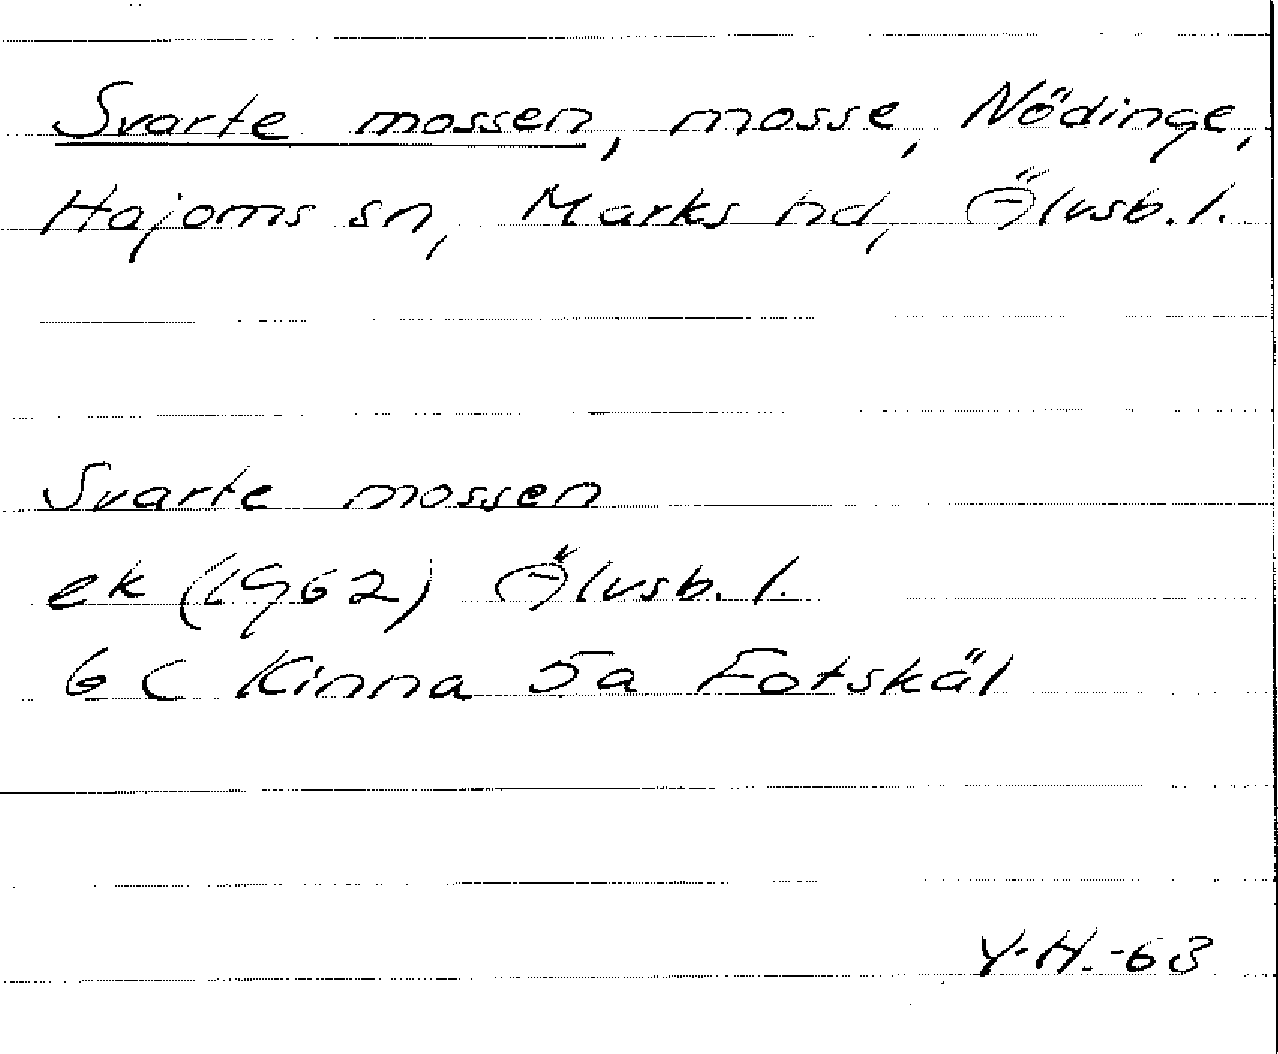 Svarte mossen, mosse, Nödinge,
Hajoms sn, Marks hd, Älvsb. l.
Svarte mossen
ek (1962) Älvsb. l.
6 C Kinna 5a Fotskäl
Y.H.-63